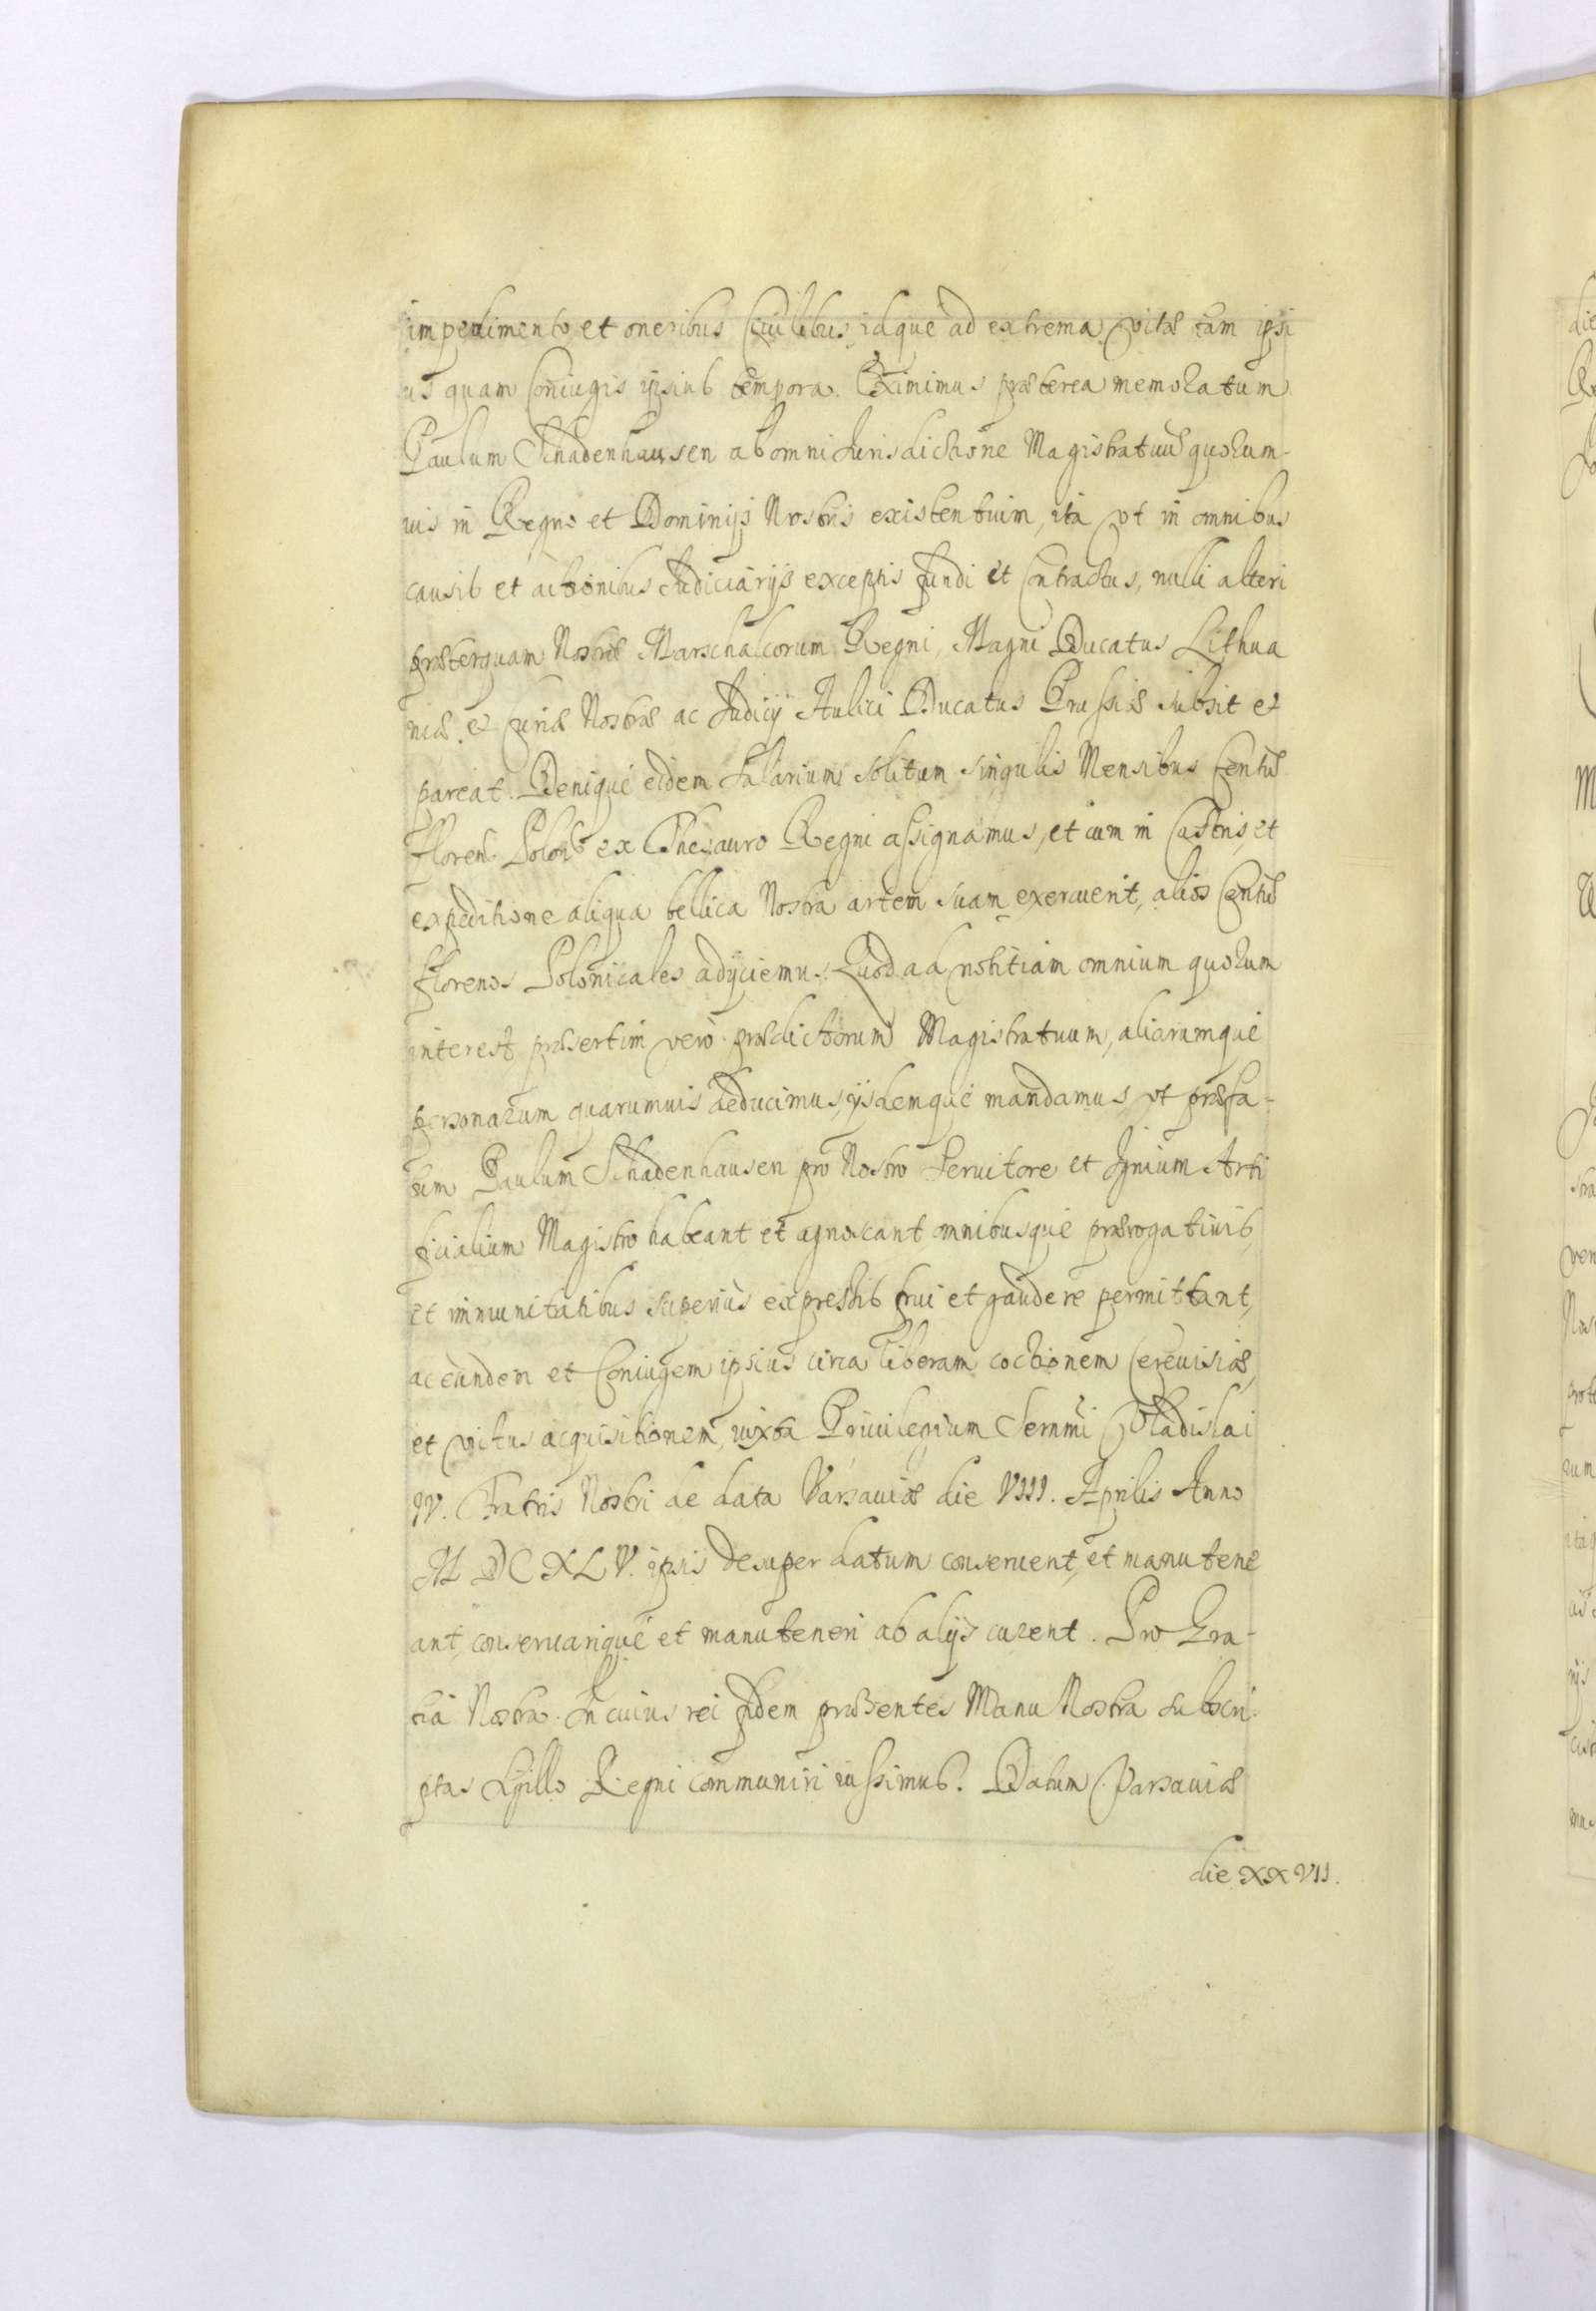 impedimento et oneribus Ciuilibus, idque ad extrema vitæ tam ipsi
us quam Coniugis ipsius tempora. Eximimus præterea memoratum
Paulum Schadenhausen ab omni Iurisdictione Magistratuũ quorum-
uis in Regno et Dominijs Nostris existentium, ita vt in omnibus
causis et actionibus Judiciarijs exceptis fundi et Contractus, nulli alteri
præterquam Nostræ Marschalcorum Regni, Magni Ducatus Lithua
niæ, et Curiæ Nostræ ac Judicij Aulici Ducatus Prussiæ subsit et
pareat. Denique eidem Salarium solitum singulis Mensibus Centũ
Floren. Polon. ex Thesauro Regni assignamus, et cum in Castris, et
expeditione aliqua bellica Nostra artem suam exercuerit, alios Centũ
florenos Polonicales adijciemus. Quod ad notitiam omnium quorum
interest, præsertim verò prædictorum Magistratuum, aliarumque
personarum quarumuis deducimus, ijsdemque mandamus, vt præfa-
tum Paulum Schadenhausen pro Nostro Seruitore et Ignium Arti
ficialium Magistro habeant et agnoscant, omnibusque prærogatiuis,
et immunitatibus superius expressis frui et gaudere permittant,
ac eundem et Coniugem ipsius circa liberam coctionem Cereuisiæ,
et victus acquisitionem, iuxta Priuilegium Sermi Vladislai
IV. Fratris Nostri de data Varsauiæ die VIII. Aprilis Anno
M DC XL V. ipsis desuper datum conseruent, et manutene
ant, conseruarique et manuteneri ab alijs curent. Pro Gra-
tia Nostra. In cuius rei fidem præsentes Manu Nostra subscri-
ptas Sigillo Regni communiri iussimus. Datum Varsauiæ
die XXVII.